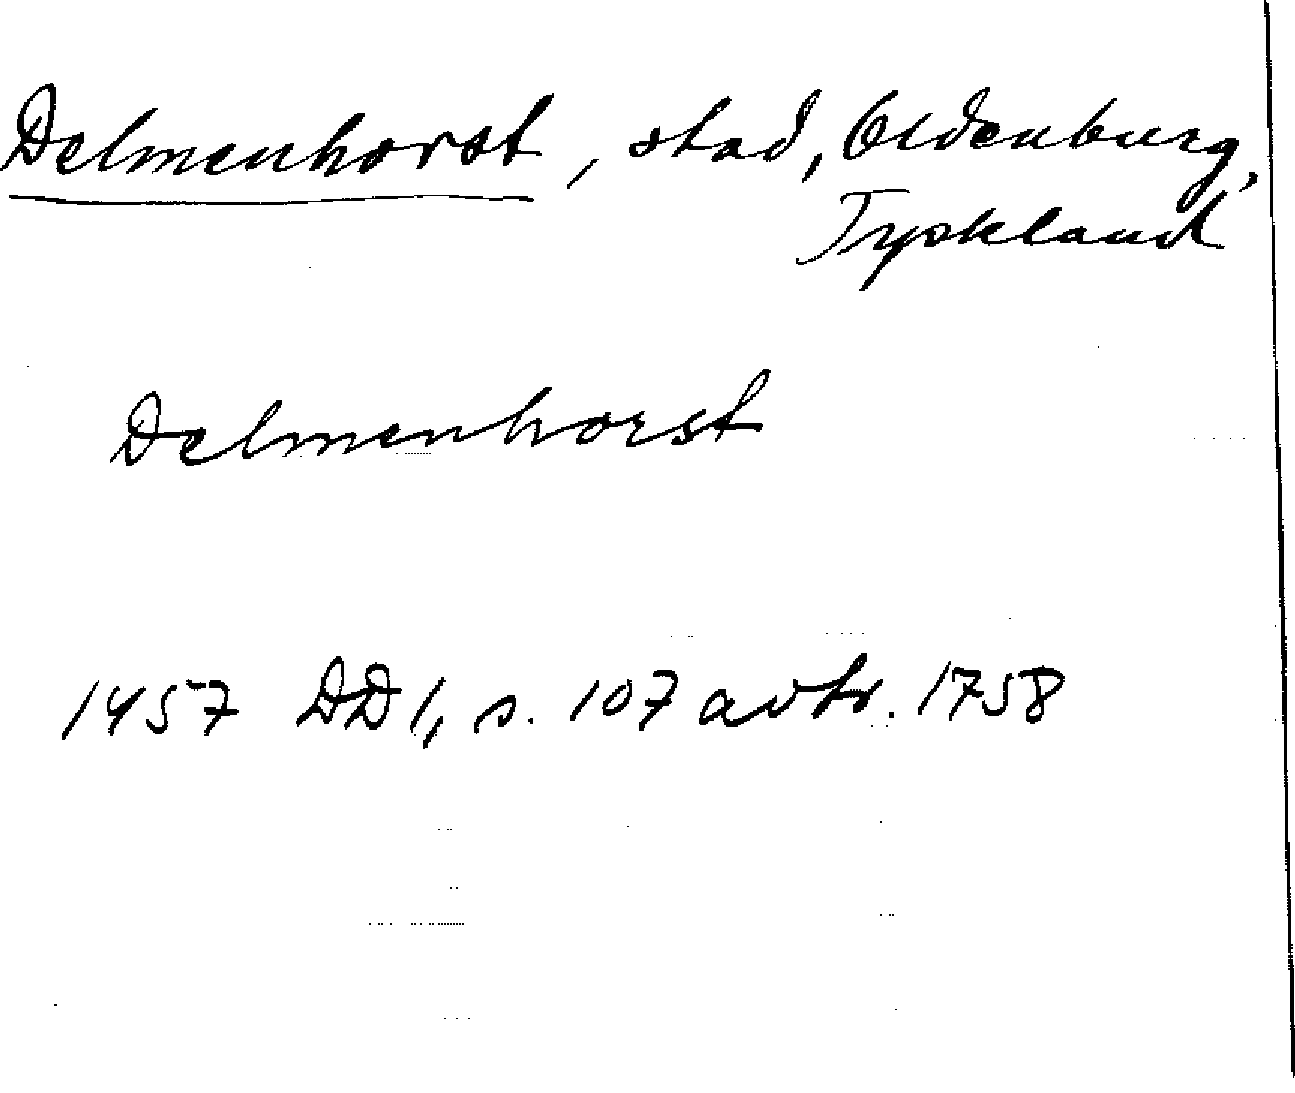 Delmenhorst, stad, Oldenburg,
Tyskland
Delmenhorst
1457 DD 1, s. 107 avskr. 1758